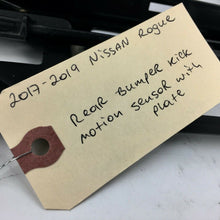 2017-2019 Nissan Rogue
Rear Bumper Kick
motion sensor with
plate